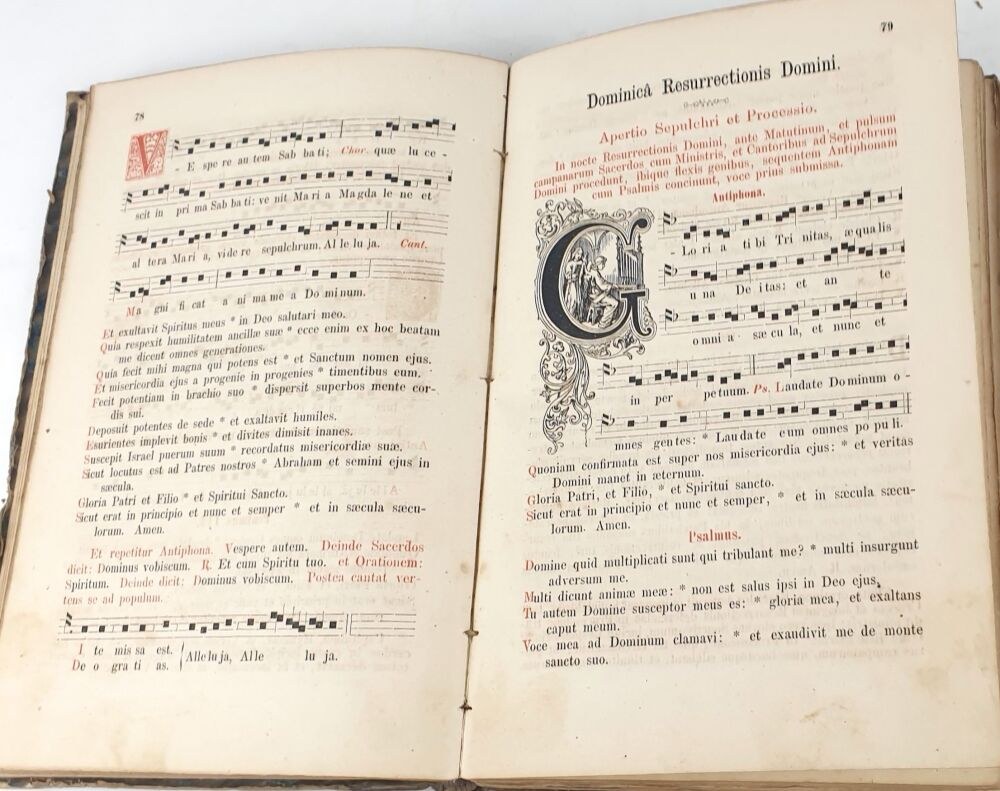 78
V - E spe re au tem Sab ba ti; Chor. quæ lu ce -
scit in pri ma Sab ba ti; ve nit Ma ri a Magda le ne et
al tera Mari a, vide re sepulchrum. Al le lu ja. Cant.
Ma gni fi cat a ni ma me a Do minum.
Et exultavit Spiritus meus * in Deo salutari meo.
Quia respexit humilitatem ancillæ suæ * ecce enim ex hoc beatam
me dicent omnes generationes.
Quia fecit mihi magna qui potens est * et Sanctum nomen ejus.
Et misericordia ejus a progenie in progenies * timentibus eum.
Fecit potentiam in brachio suo * dispersit superbos mente cor-
dis sui.
Deposuit potentes de sede * et exaltavit humiles.
Esurientes implevit bonis * et divites dimisit inanes.
Suscepit Israel puerum suum * recordatus misericordiæ suæ.
Sicut locutus est ad Patres nostros * Abraham et semini ejus in
sæcula.
Gloria Patri et Filio * et Spiritui Sancto.
Sicut erat in principio et nunc et semper * et in sæcula sæcu-
lorum. Amen.
Et repetitur Antiphona. Vespere autem. Deinde Sacerdos
dicit: Dominus vobiscum. R. Et cum Spiritu tuo. et Orationem:
Spiritum. Deinde dicit: Dominus vobiscum. Postea cantat ver-
tens se ad populum.
I te mis sa est.
De o gra ti as. Alle lu ja, Al le lu ja.
79
Dominicâ Resurrectionis Domini.
Apertio Sepulchri et Processio.
In nocte Resurrectionis Domini, ante Matutinum, et pulsum
campanarum Sacerdos cum Ministris, et Cantoribus ad Sepulchrum
Domini procedunt, ibique flexis genibus, sequentem Antiphonam
cum Psalmis concinunt, voce prius submissa.
Antiphona.
G - Lo ri a ti bi Tri nitas, æ qualis
u na De i tas: et an te
o mni a sæ cu la, et nunc et
in per pe tuum. Ps. Laudate Do minum o -
mnes gentes: * Lau da te eum omnes po pu li.
Quoniam confirmata est super nos misericordia ejus: * et veritas
Domini manet in æternum.
Gloria Patri, et Filio, * et Spiritui sancto.
Sicut erat in principio et nunc et semper, * et in sæcula sæcu-
lorum. Amen.
Psalmus.
Domine quid multiplicati sunt qui tribulant me? * multi insurgunt
adversum me.
Multi dicunt animæ meæ: * non est salus ipsi in Deo ejus.
Tu autem Domine susceptor meus es: * gloria mea, et exaltans
caput meum.
Voce mea ad Dominum clamavi: * et exaudivit me de monte
sancto suo.